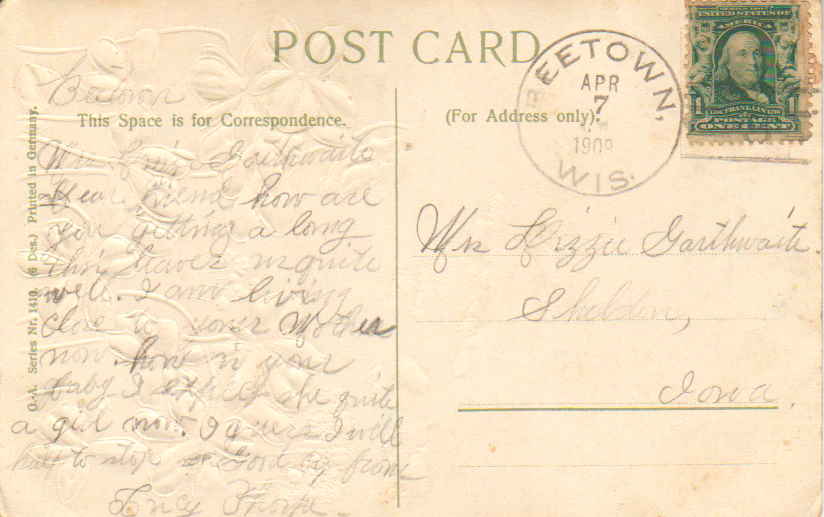 POST CARD
Beetown
This Space is for Correspondence.
(For Address only).
BEETOWN,
APR
7
1909
WIS.
UNITED STATES OF
AMERICA
FRANKLIN
1 1
POSTAGE
ONE CENT
Garthwaite
Dear friend how are
you getting a long
this leaves us quite
well. I am living
close to your Mother
now. how is your
baby I expect she quite
a girl now. I guess I will
haft to stop Good by from
Lucy
Mrs Lizzie Garthwaite.
Sheldon,
Iowa.
O.-A. Series Nr. 1410. (6 Des.) Printed in Germany.